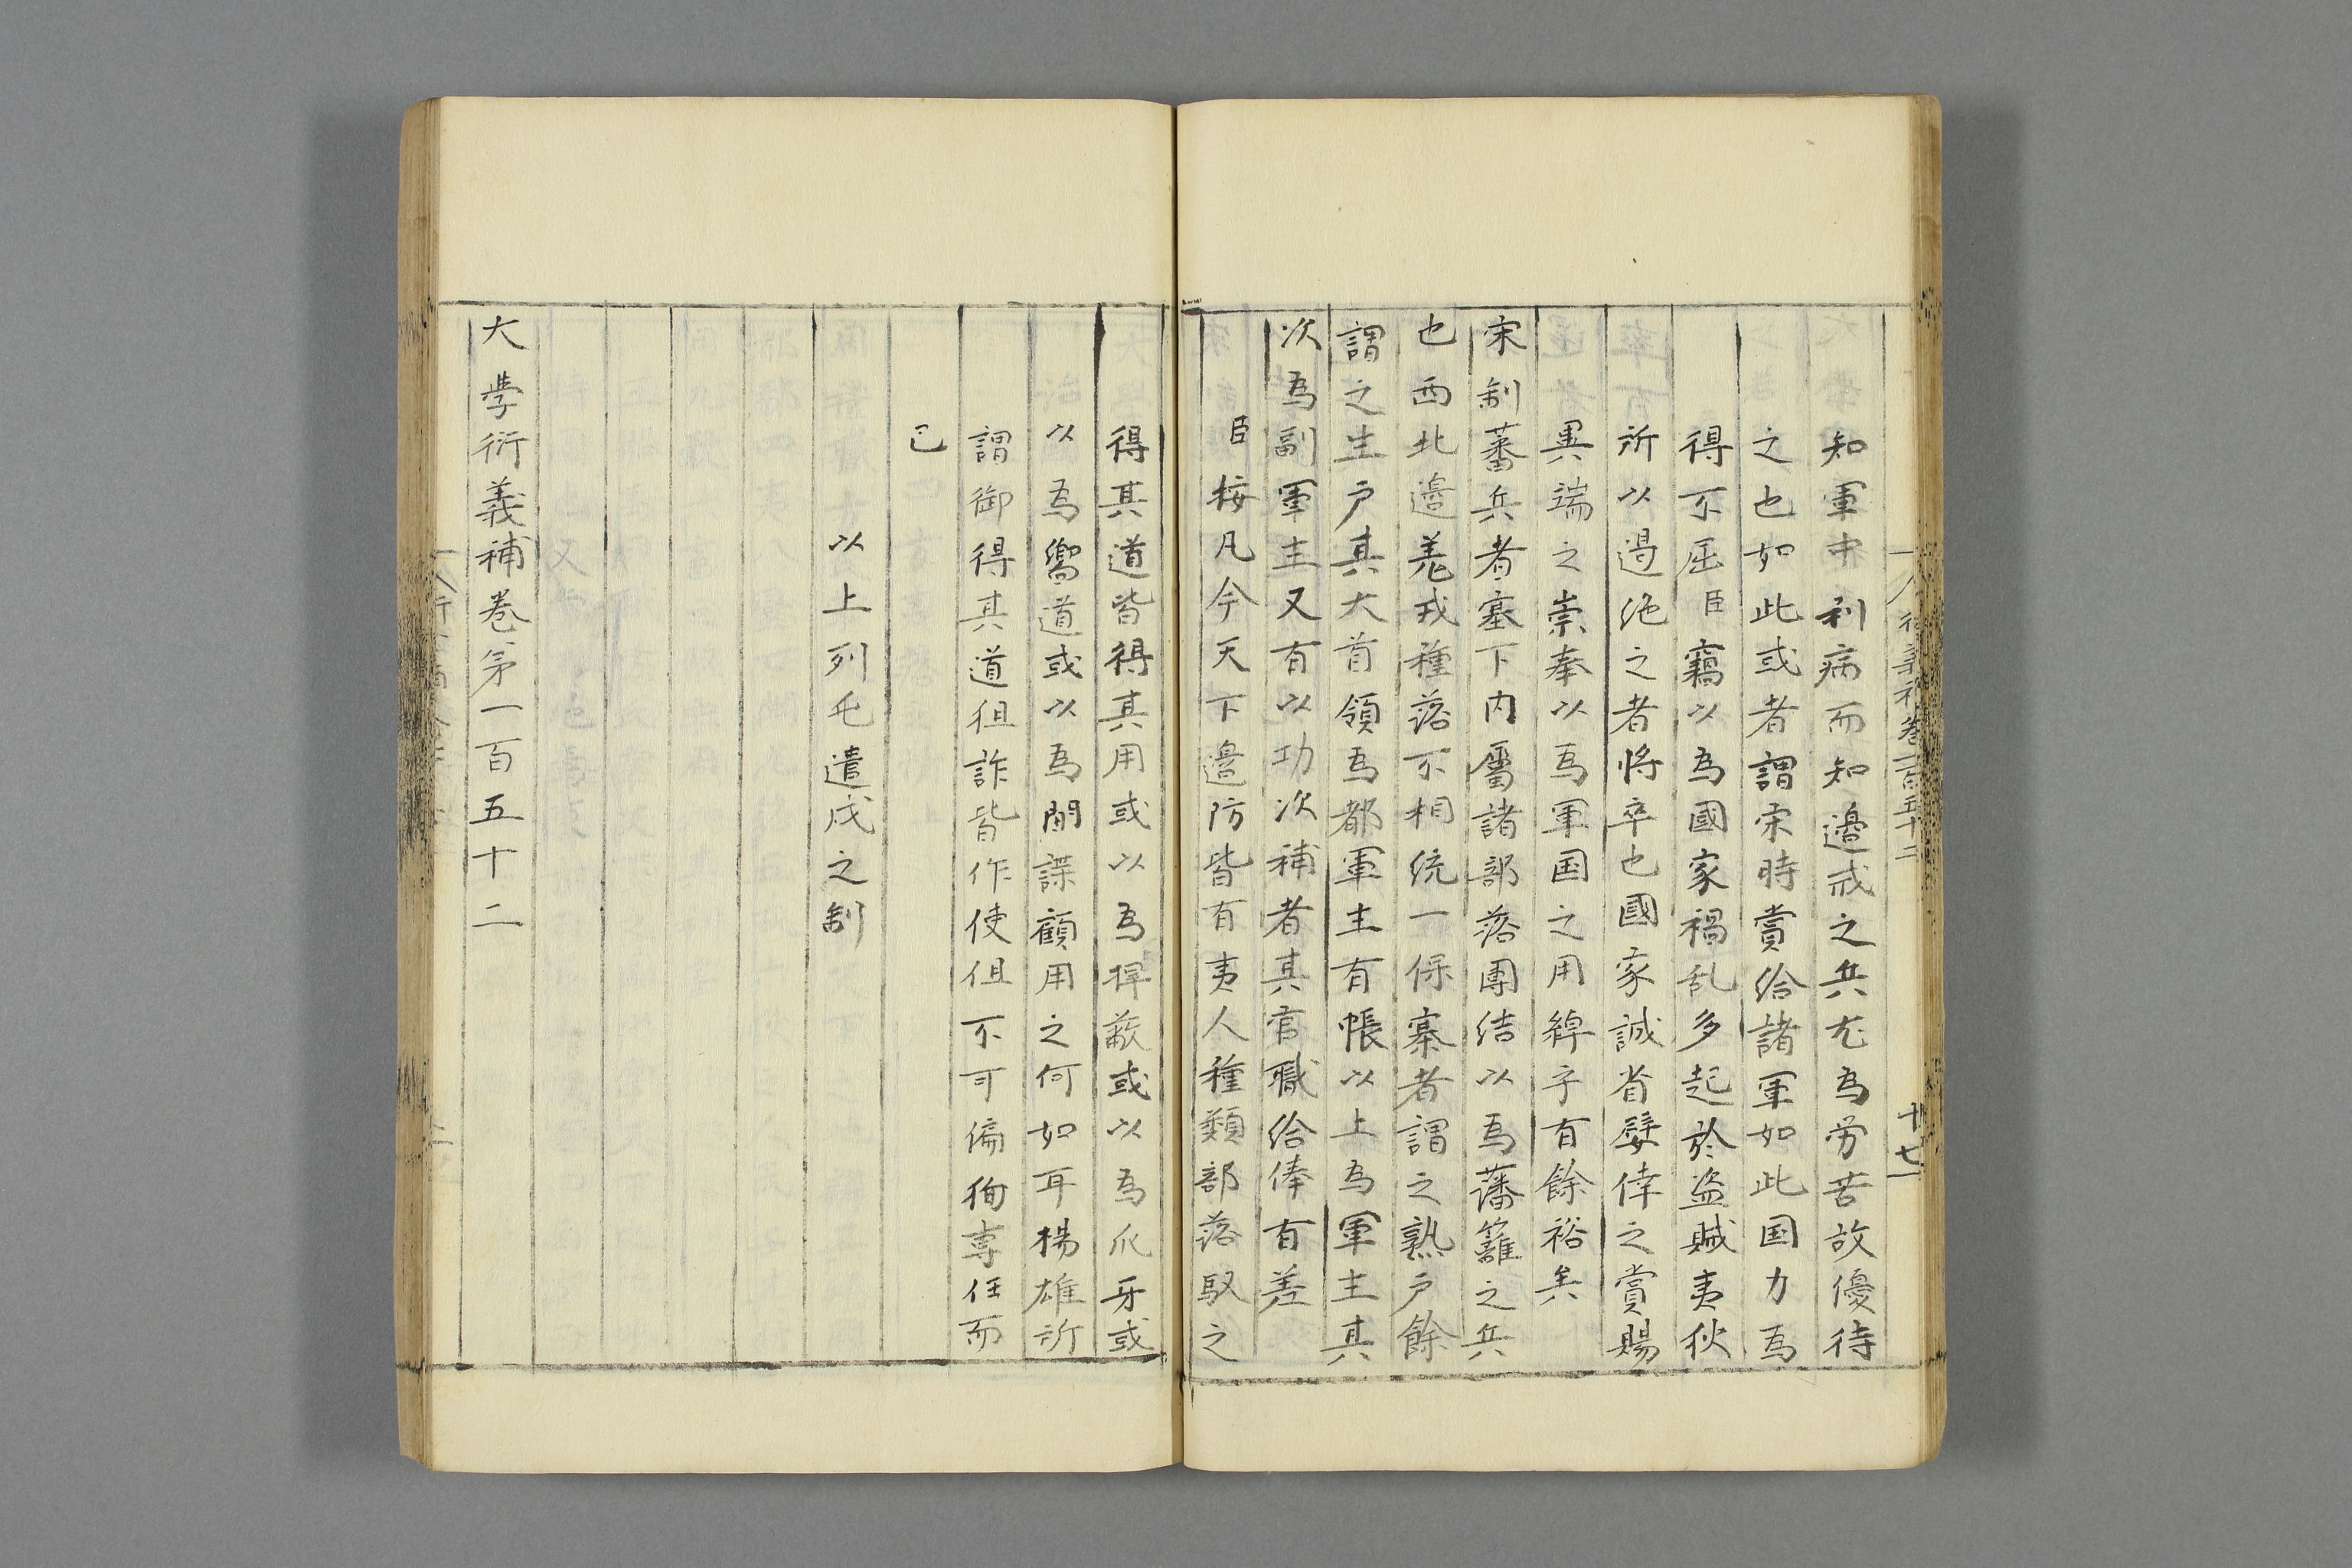 知軍中利病而知邉戒之兵尤為労苦故優待
之也如此或者謂宋時賞給諸軍如此国力為
得不屈臣竊以為國家禍乱多起於盗賊夷狄
所以遏绝之者將卒也國家誠省嬖倖之賞賜
異端之崇奉以為軍国之用綽乎有餘裕矣
宋制蕃兵者塞下内屬諸部落團結以為藩籬之兵
也西北邉羌戎種落不相统一保寨者謂之熟戸餘
謂之生戸其大首領為都軍主有帳以上為軍主其
次為副軍主又有以功次補者其官職给俸有差
臣按凡今天下邉防皆有夷人種類部落馭之
得其道皆得其用或以為捍蔽或以為爪牙或
以為嚮道或以為間諜顧用之何如耳楊雄所
謂御得其道狙詐皆作使但不可偏徇専任而
已
以上列屯遣戍之制
大學衍義補卷第一百五十二
十七